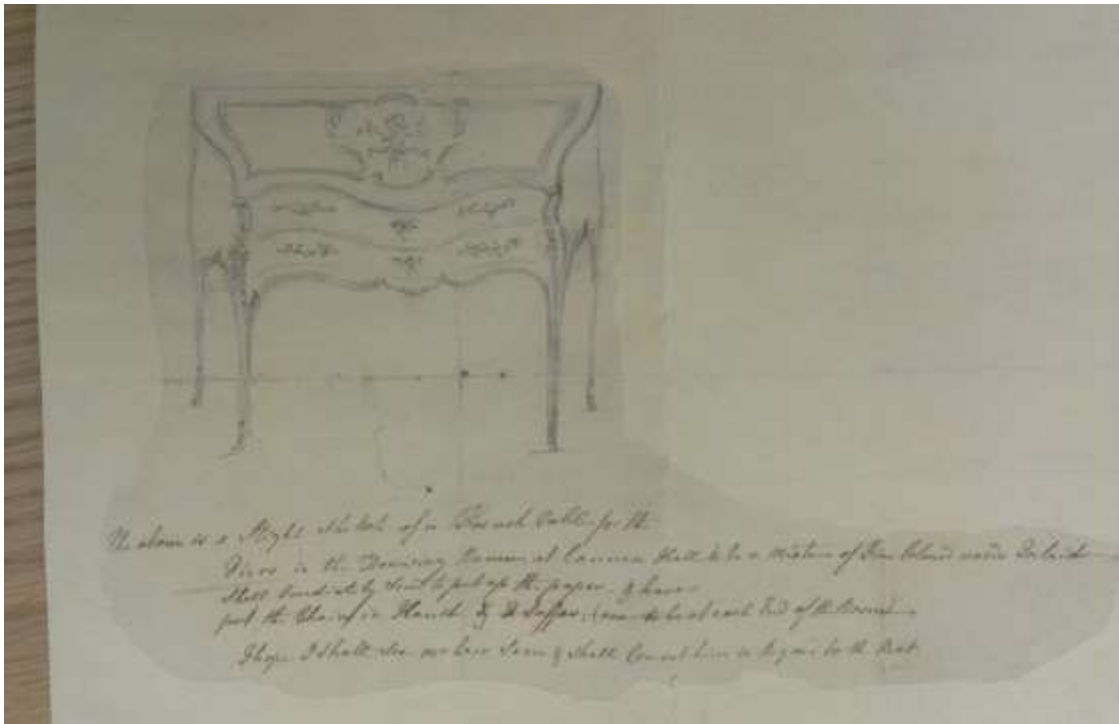 The above is a Slight Sketch of a French Table for the
Piers in the Drawing Room at Cannon Hall to be a mixture of fine Colourd woods Inlaid
Shall imediately Send to put up the paper, & have
put the Chairs in Hand & 2 Soffas, (one to be at each End of the Room)
I hope I shall See here Soon & shall Consult him in regard to the Rest